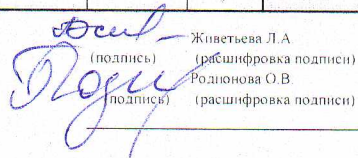 Живетьева Л.А
(подпись) (расшифровка подписи)
Родионова О.В.
(подпись) (расшифровка подписи)